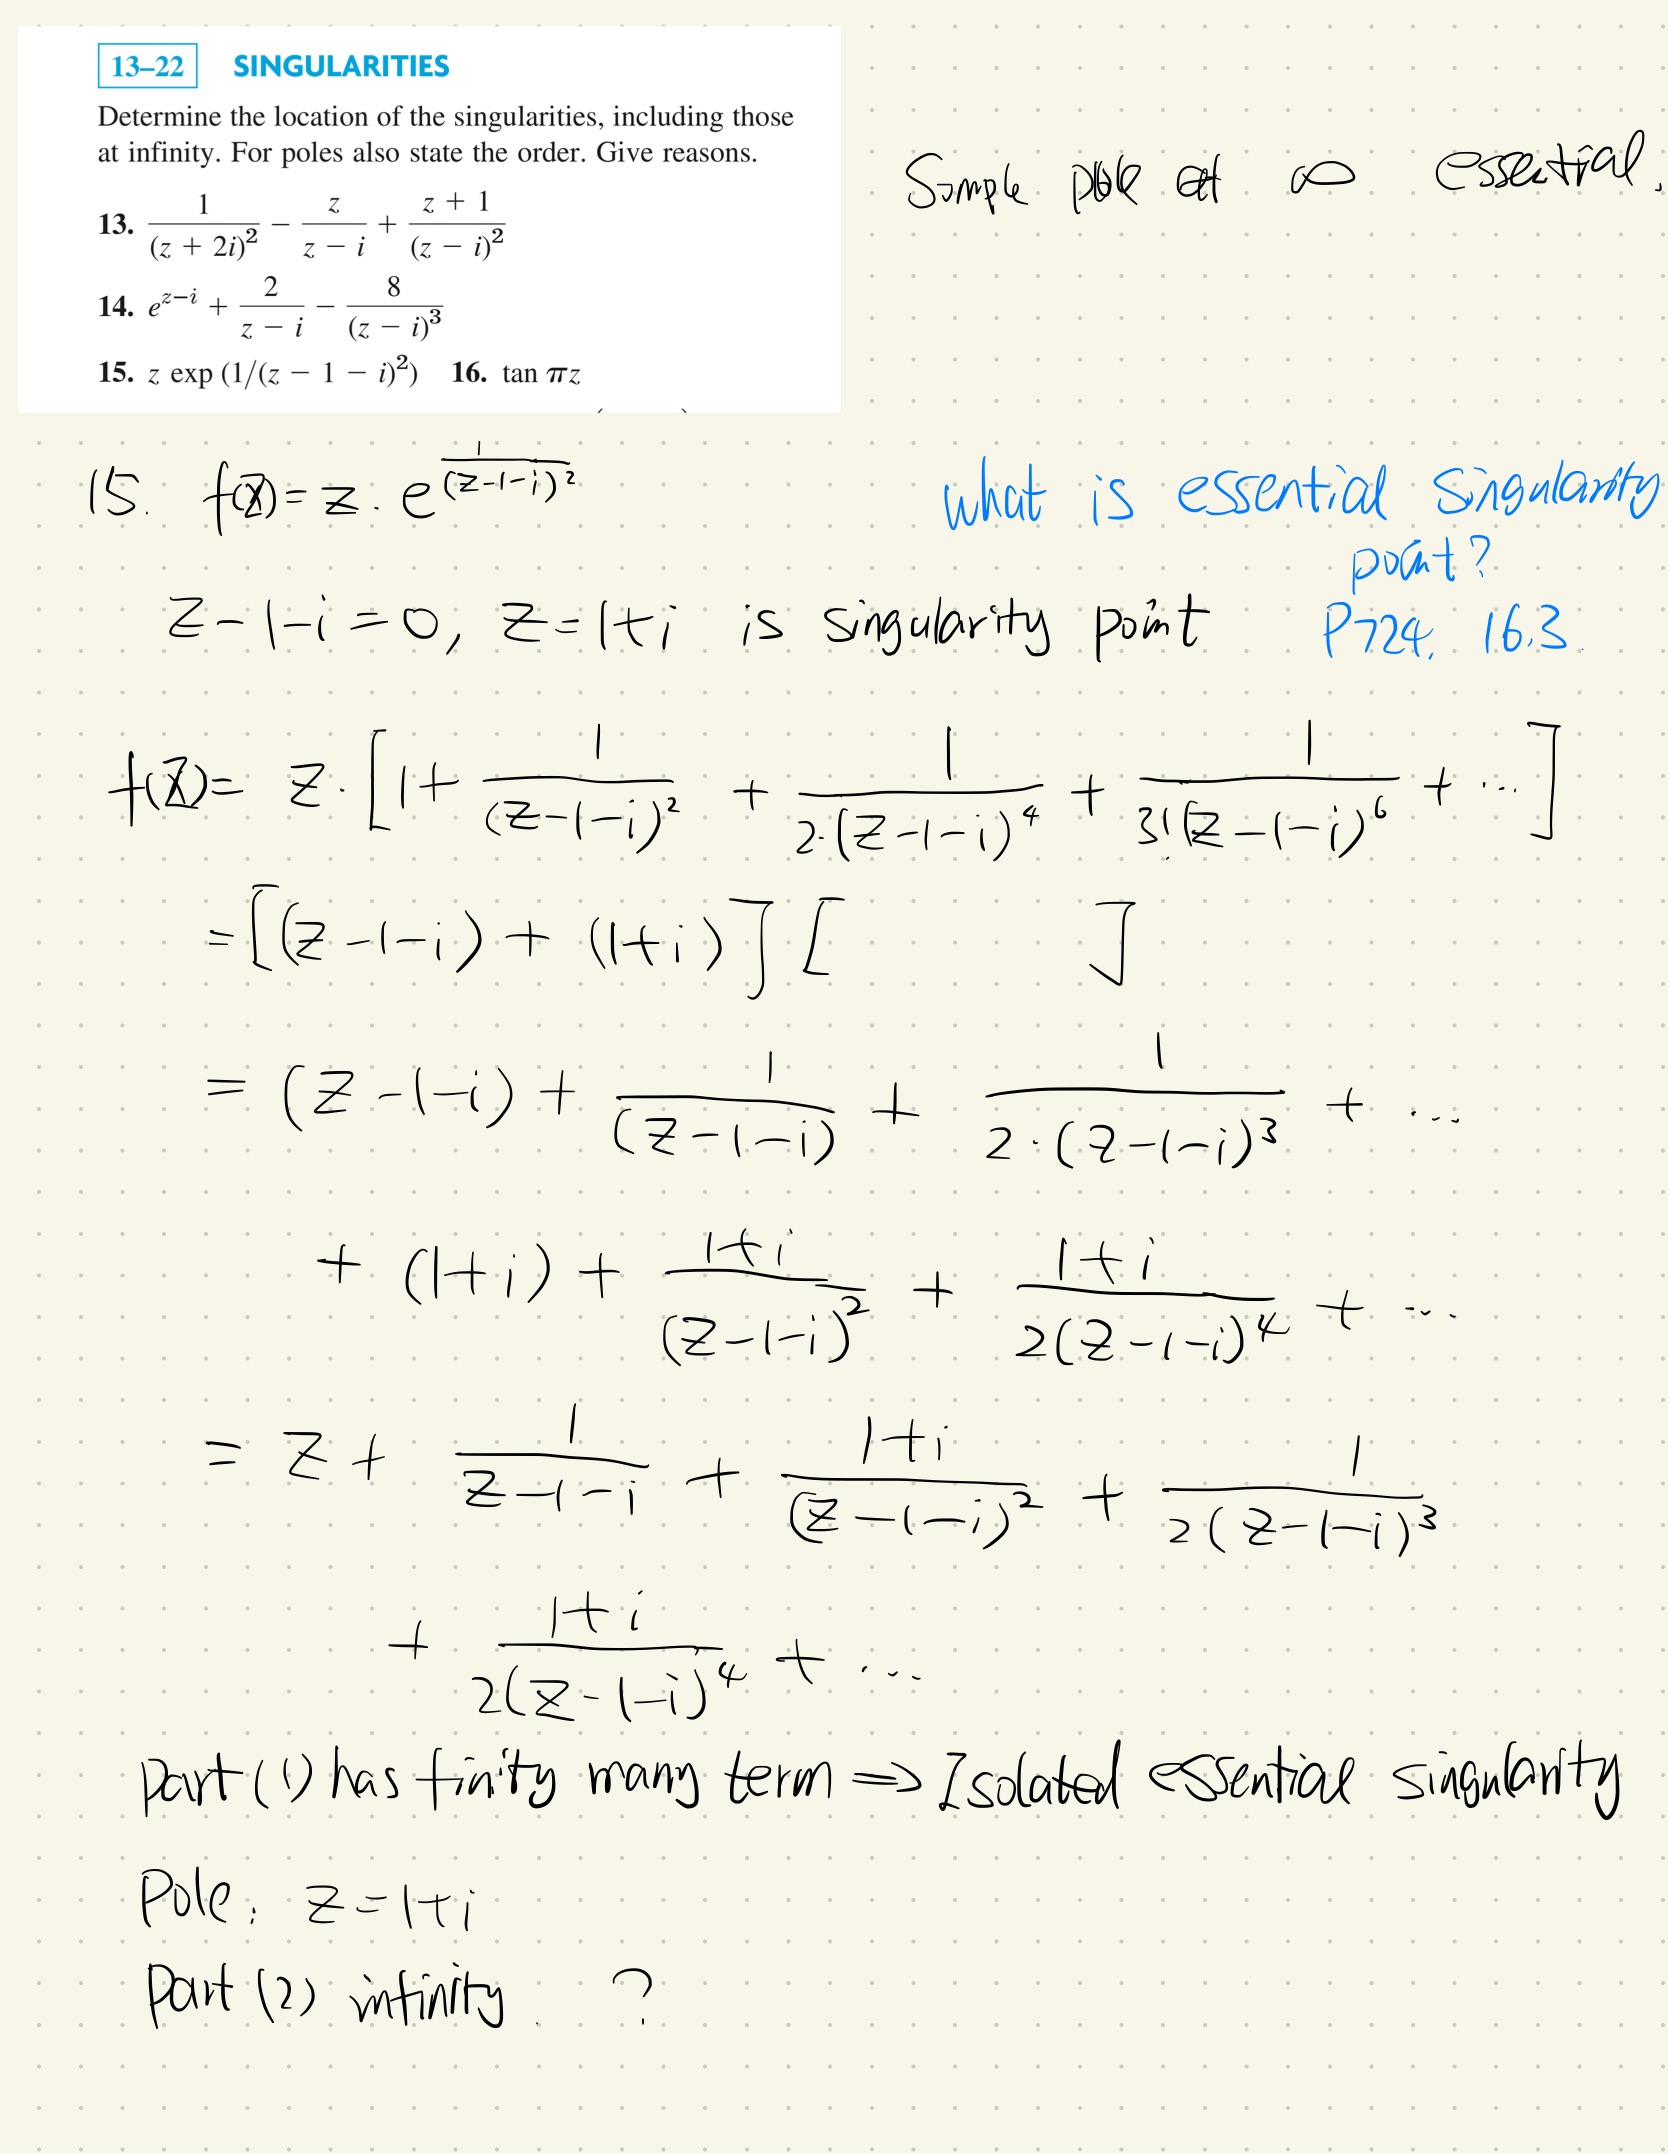 13–22 SINGULARITIES
Determine the location of the singularities, including those
at infinity. For poles also state the order. Give reasons.
13. 1/(z + 2i)² − z/(z − i) + (z + 1)/(z − i)²
14. e^(z−i) + 2/(z − i) − 8/(z − i)³
15. z exp (1/(z − 1 − i)²) 16. tan πz
Simple pole at ∞ essential.
15. f(z) = z · e^(1/(z-1-i)²)
what is essential singularity
point?
z-1-i=0, z=1+i is singularity point
P724. 16.3
f(z) = z·[1+ 1/(z-1-i)² + 1/(2·(z-1-i)⁴) + 1/(3!(z-1-i)⁶) + ...]
= [(z-1-i) + (1+i)] [ ]
= (z-1-i) + 1/(z-1-i) + 1/(2·(z-1-i)³) + ...
+ (1+i) + (1+i)/(z-1-i)² + (1+i)/(2(z-1-i)⁴) + ...
= z + 1/(z-1-i) + (1+i)/(z-1-i)² + 1/(2(z-1-i)³)
+ (1+i)/(2(z-1-i)⁴) + ...
part (1) has finity many term ⇒ Isolated essential singularity
Pole: z=1+i
Part (2) infinity. ?